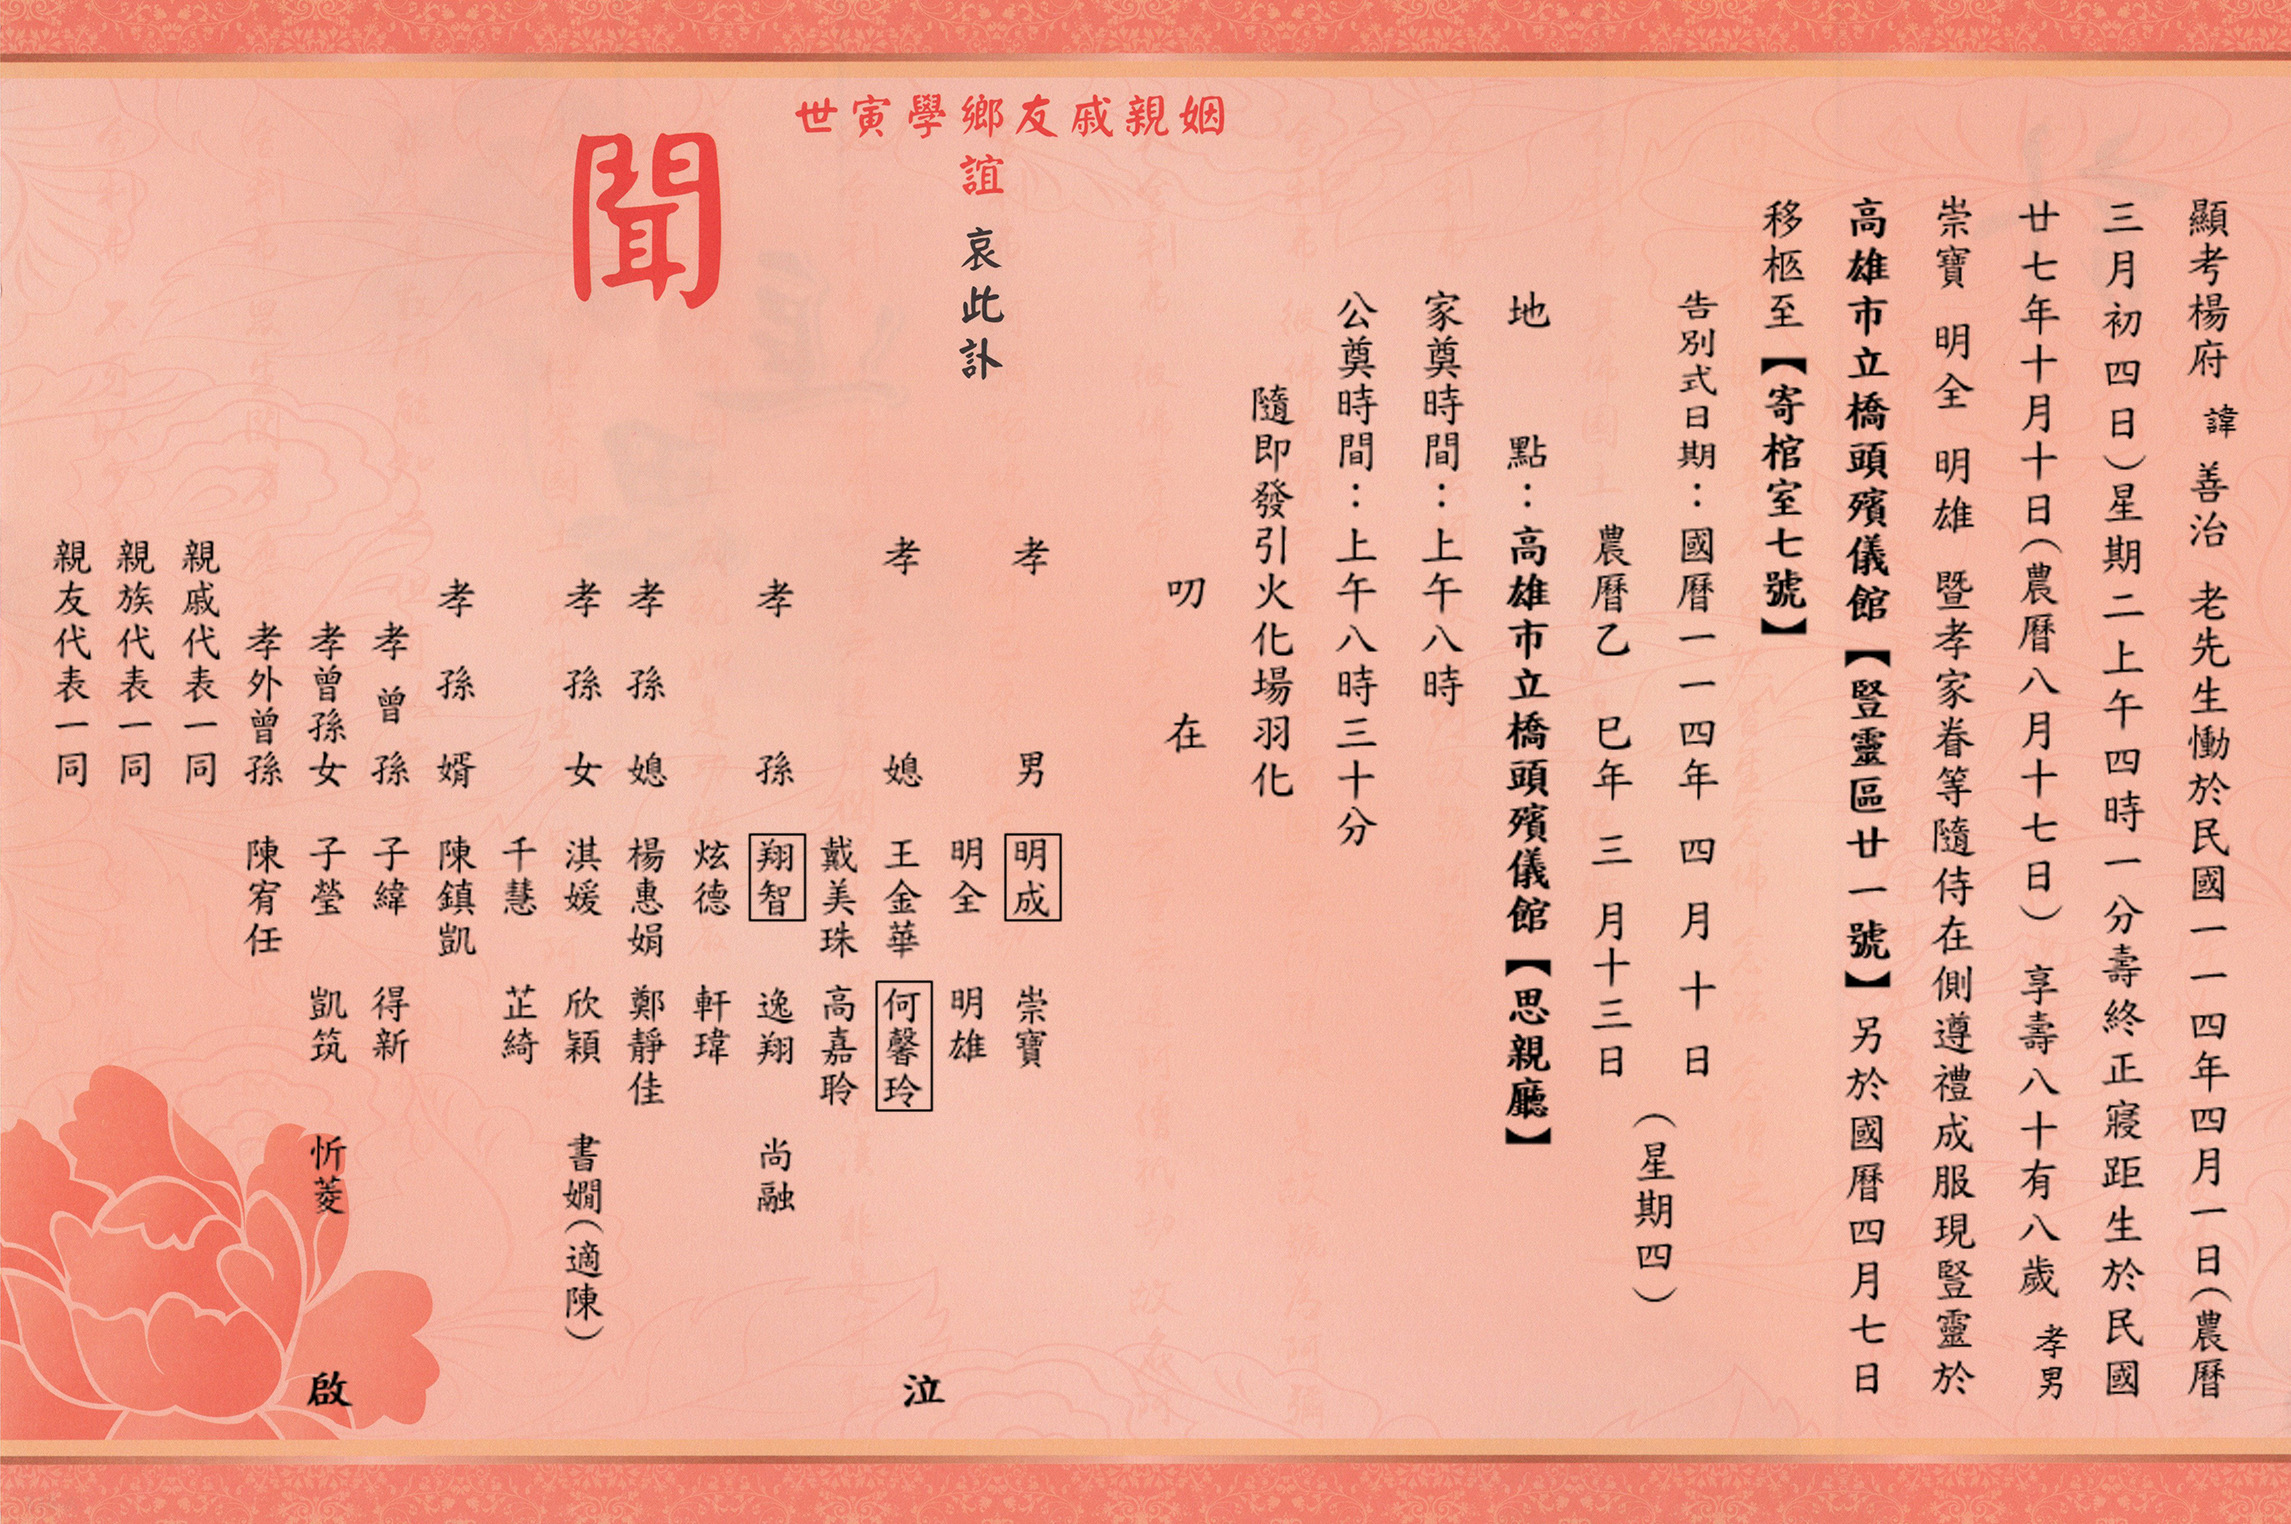 顯考楊府 諱 善治 老先生慟於民國一一四年四月一日（農曆
三月初四日）星期二上午四時一分壽終正寢距生於民國
廿七年十月十日（農曆八月十七日） 享壽八十有八歲 孝男
崇寶 明全 明雄 暨孝家眷等隨侍在側遵禮成服現豎靈於
高雄市立橋頭殯儀館【豎靈區廿一號】另於國曆四月七日
移柩至【寄棺室七號】
告別式日期：國曆一一四年 四 月 十 日
農曆乙 巳年 三 月十三日
（星期四）
地 點：高雄市立橋頭殯儀館【思親廳】
家奠時間：上午八時
公奠時間：上午八時三十分
隨即發引火化場羽化
叨 在
姻親戚友鄉學寅世
誼 哀此訃
聞
孝 男 明成 崇寶
明全 明雄
孝 媳 王金華 何馨玲
戴美珠 高嘉聆
孝 孫 翔智 逸翔 尚融
炫德 軒瑋
孝 孫 媳 楊惠娟 鄭靜佳
孝 孫 女 淇媛 欣穎 書嫺（適陳）
千慧 芷綺
孝 孫 婿 陳鎮凱
孝 曾 孫 子緯 得新
孝曾孫女 子瑩 凱筑 忻菱
孝外曾孫 陳宥任
親戚代表一同
親族代表一同
親友代表一同
泣
啟